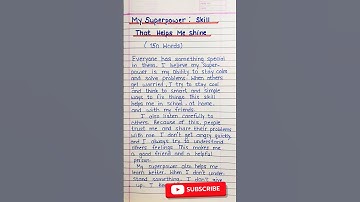 My Superpower : Skill
That Helps Me Shine
( 150 Words)
Everyone has something special
in them. I believe my super-
power is my ability to stay calm
and solve problems. When others
get worried, I try to stay cool
and think to smart and simple
ways to fix things. This skill
helps me in school, at home,
and with my friends.
I also listen carefully to
others. Because of this, people
trust me and share their problems
with me. I don't get angry quickly
and I always try to understand
others feelings. This makes me
a good friend and a helpful
person.
My superpower also helps me
learn better. When I don't under-
stand something, I don't give
up. I
SUBSCRIBE